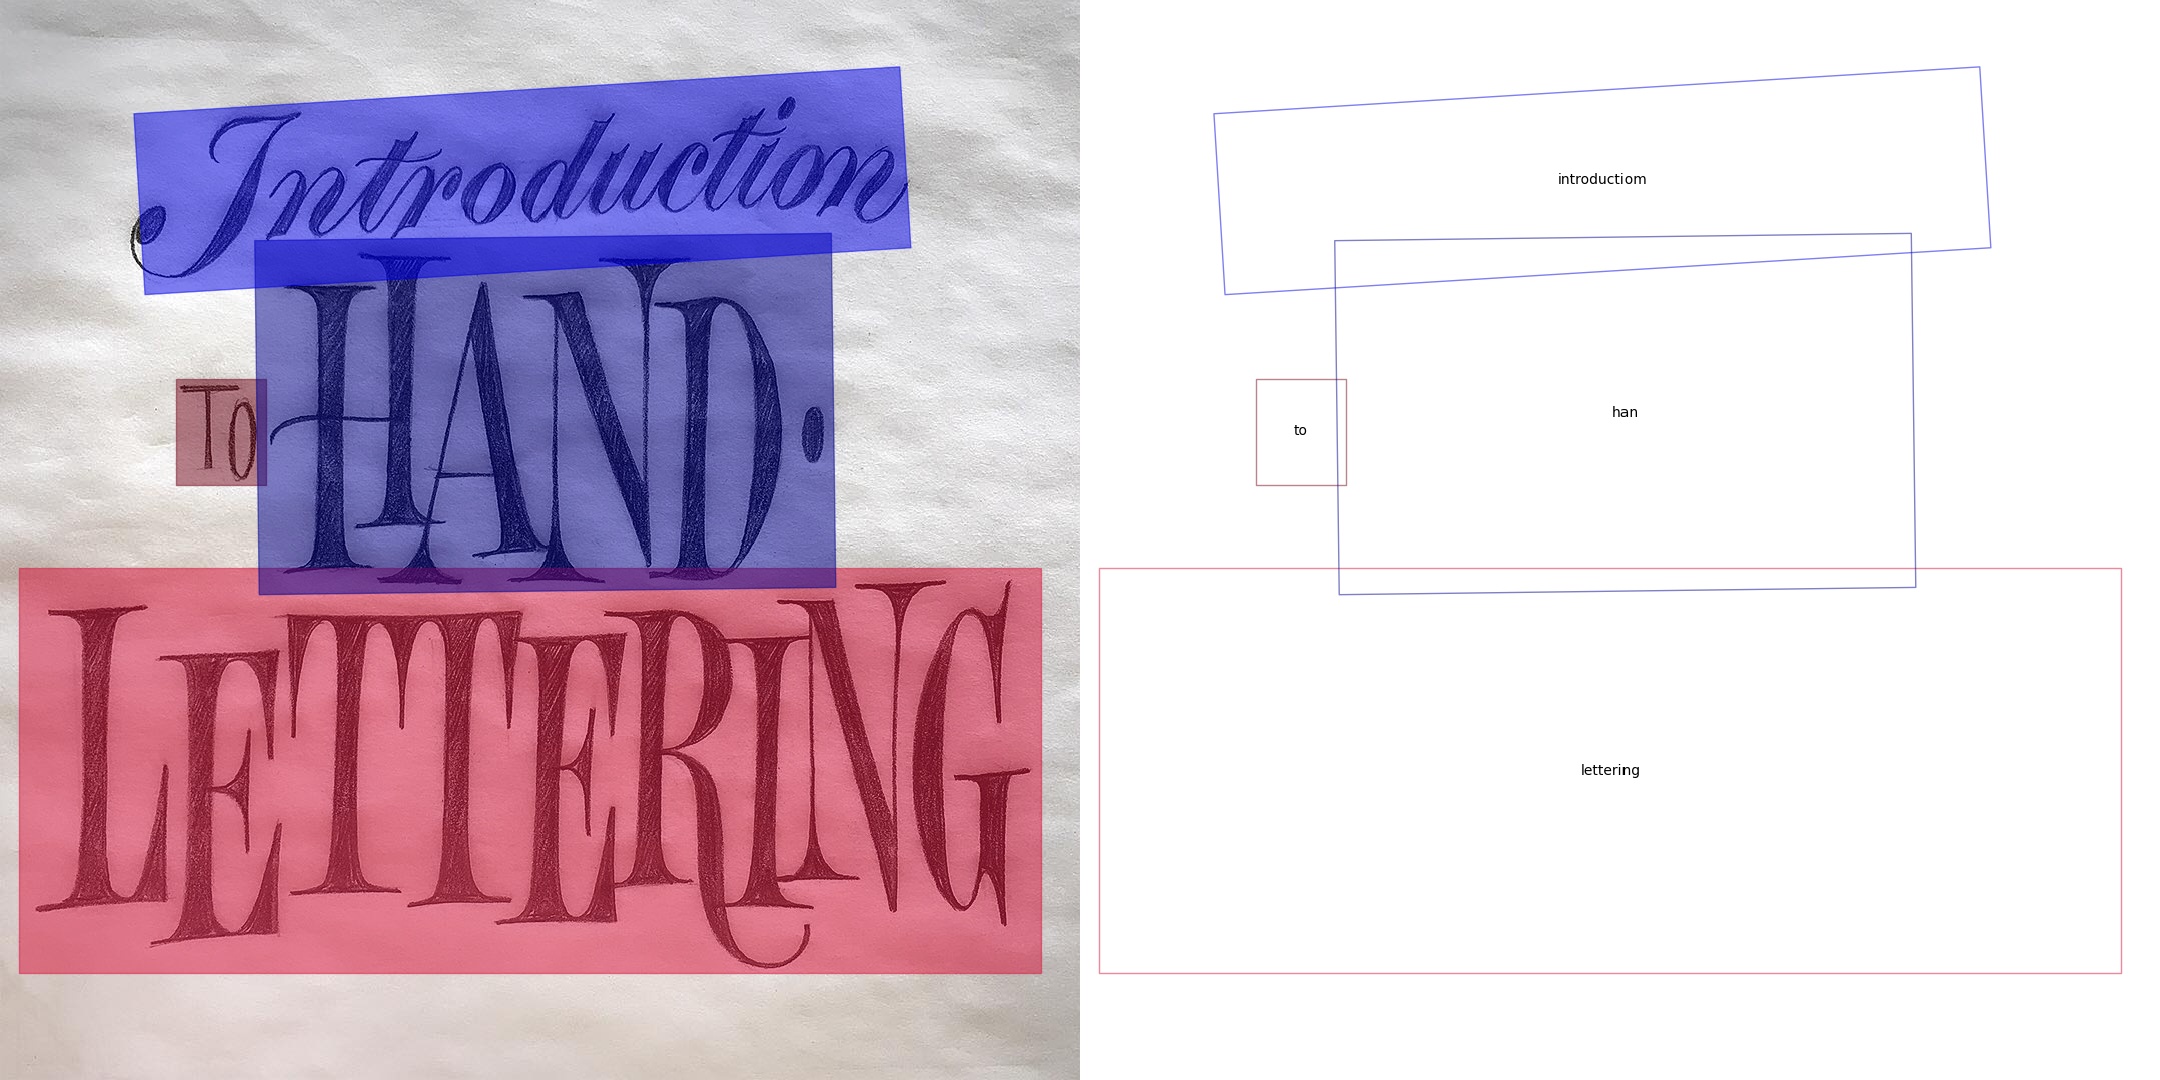 Introduction
To HAND·
LETTERING
introductiom
han
to
lettering